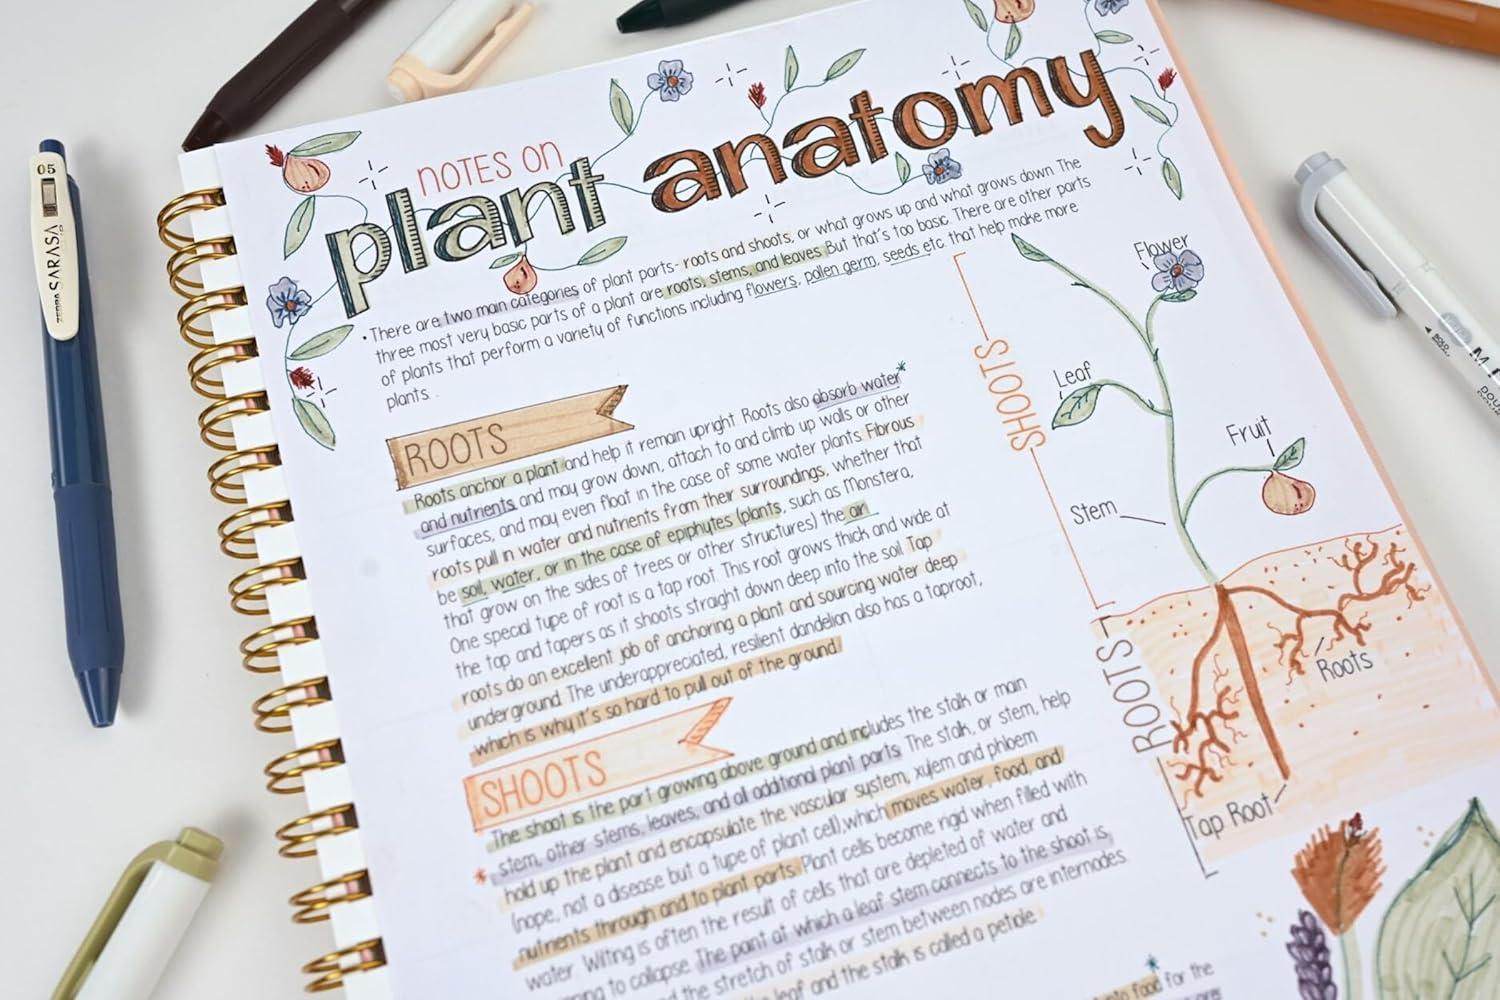 NOTES ON
plant anatomy
• There are two main categories of plant parts- roots and shoots, or what grows up and what grows down. The
three most very basic parts of a plant are roots, stems, and leaves. But that's too basic. There are other parts
of plants that perform a variety of functions including flowers, pollen germ, seeds etc. that help make more
plants.
ROOTS
Roots anchor a plant and help it remain upright. Roots also absorb water*
and nutrients and may grow down, attach to and climb up walls or other
surfaces, and may even float in the case of some water plants. Fibrous
roots pull in water and nutrients from their surroundings, whether that
be soil, water, or in the case of epiphytes (plants, such as Monstera,
that grow on the sides of trees or other structures) the air.
One special type of root is a tap root. This root grows thick and wide at
the top and tapers as it shoots straight down deep into the soil. Tap
roots do an excellent job of anchoring a plant and sourcing water deep
underground. The underappreciated, resilient dandelion also has a taproot,
which is why it's so hard to pull out of the ground!
SHOOTS
The shoot is the part growing above ground and includes the stalk or main
stem, other stems, leaves, and all additional plant parts. The stalk, or stem, help
* hold up the plant and encapsulate the vascular system, xylem and phlbem
(nope, not a disease but a type of plant cell), which moves water, food, and
nutrients through and to plant parts. Plant cells become rigid when filled with
water. Wilting is often the result of cells that are depleted of water and
to collapse. The point at which a leaf stem connects to the shoot is
and the stretch of stalk or stem between nodes are internodes.
leaf and the stalk is called a petiole.
into food for the
SHOOTS
Flower
Leaf
Fruit
Stem
ROOTS
Roots
Tap Root
05
ZEBRA SARASA